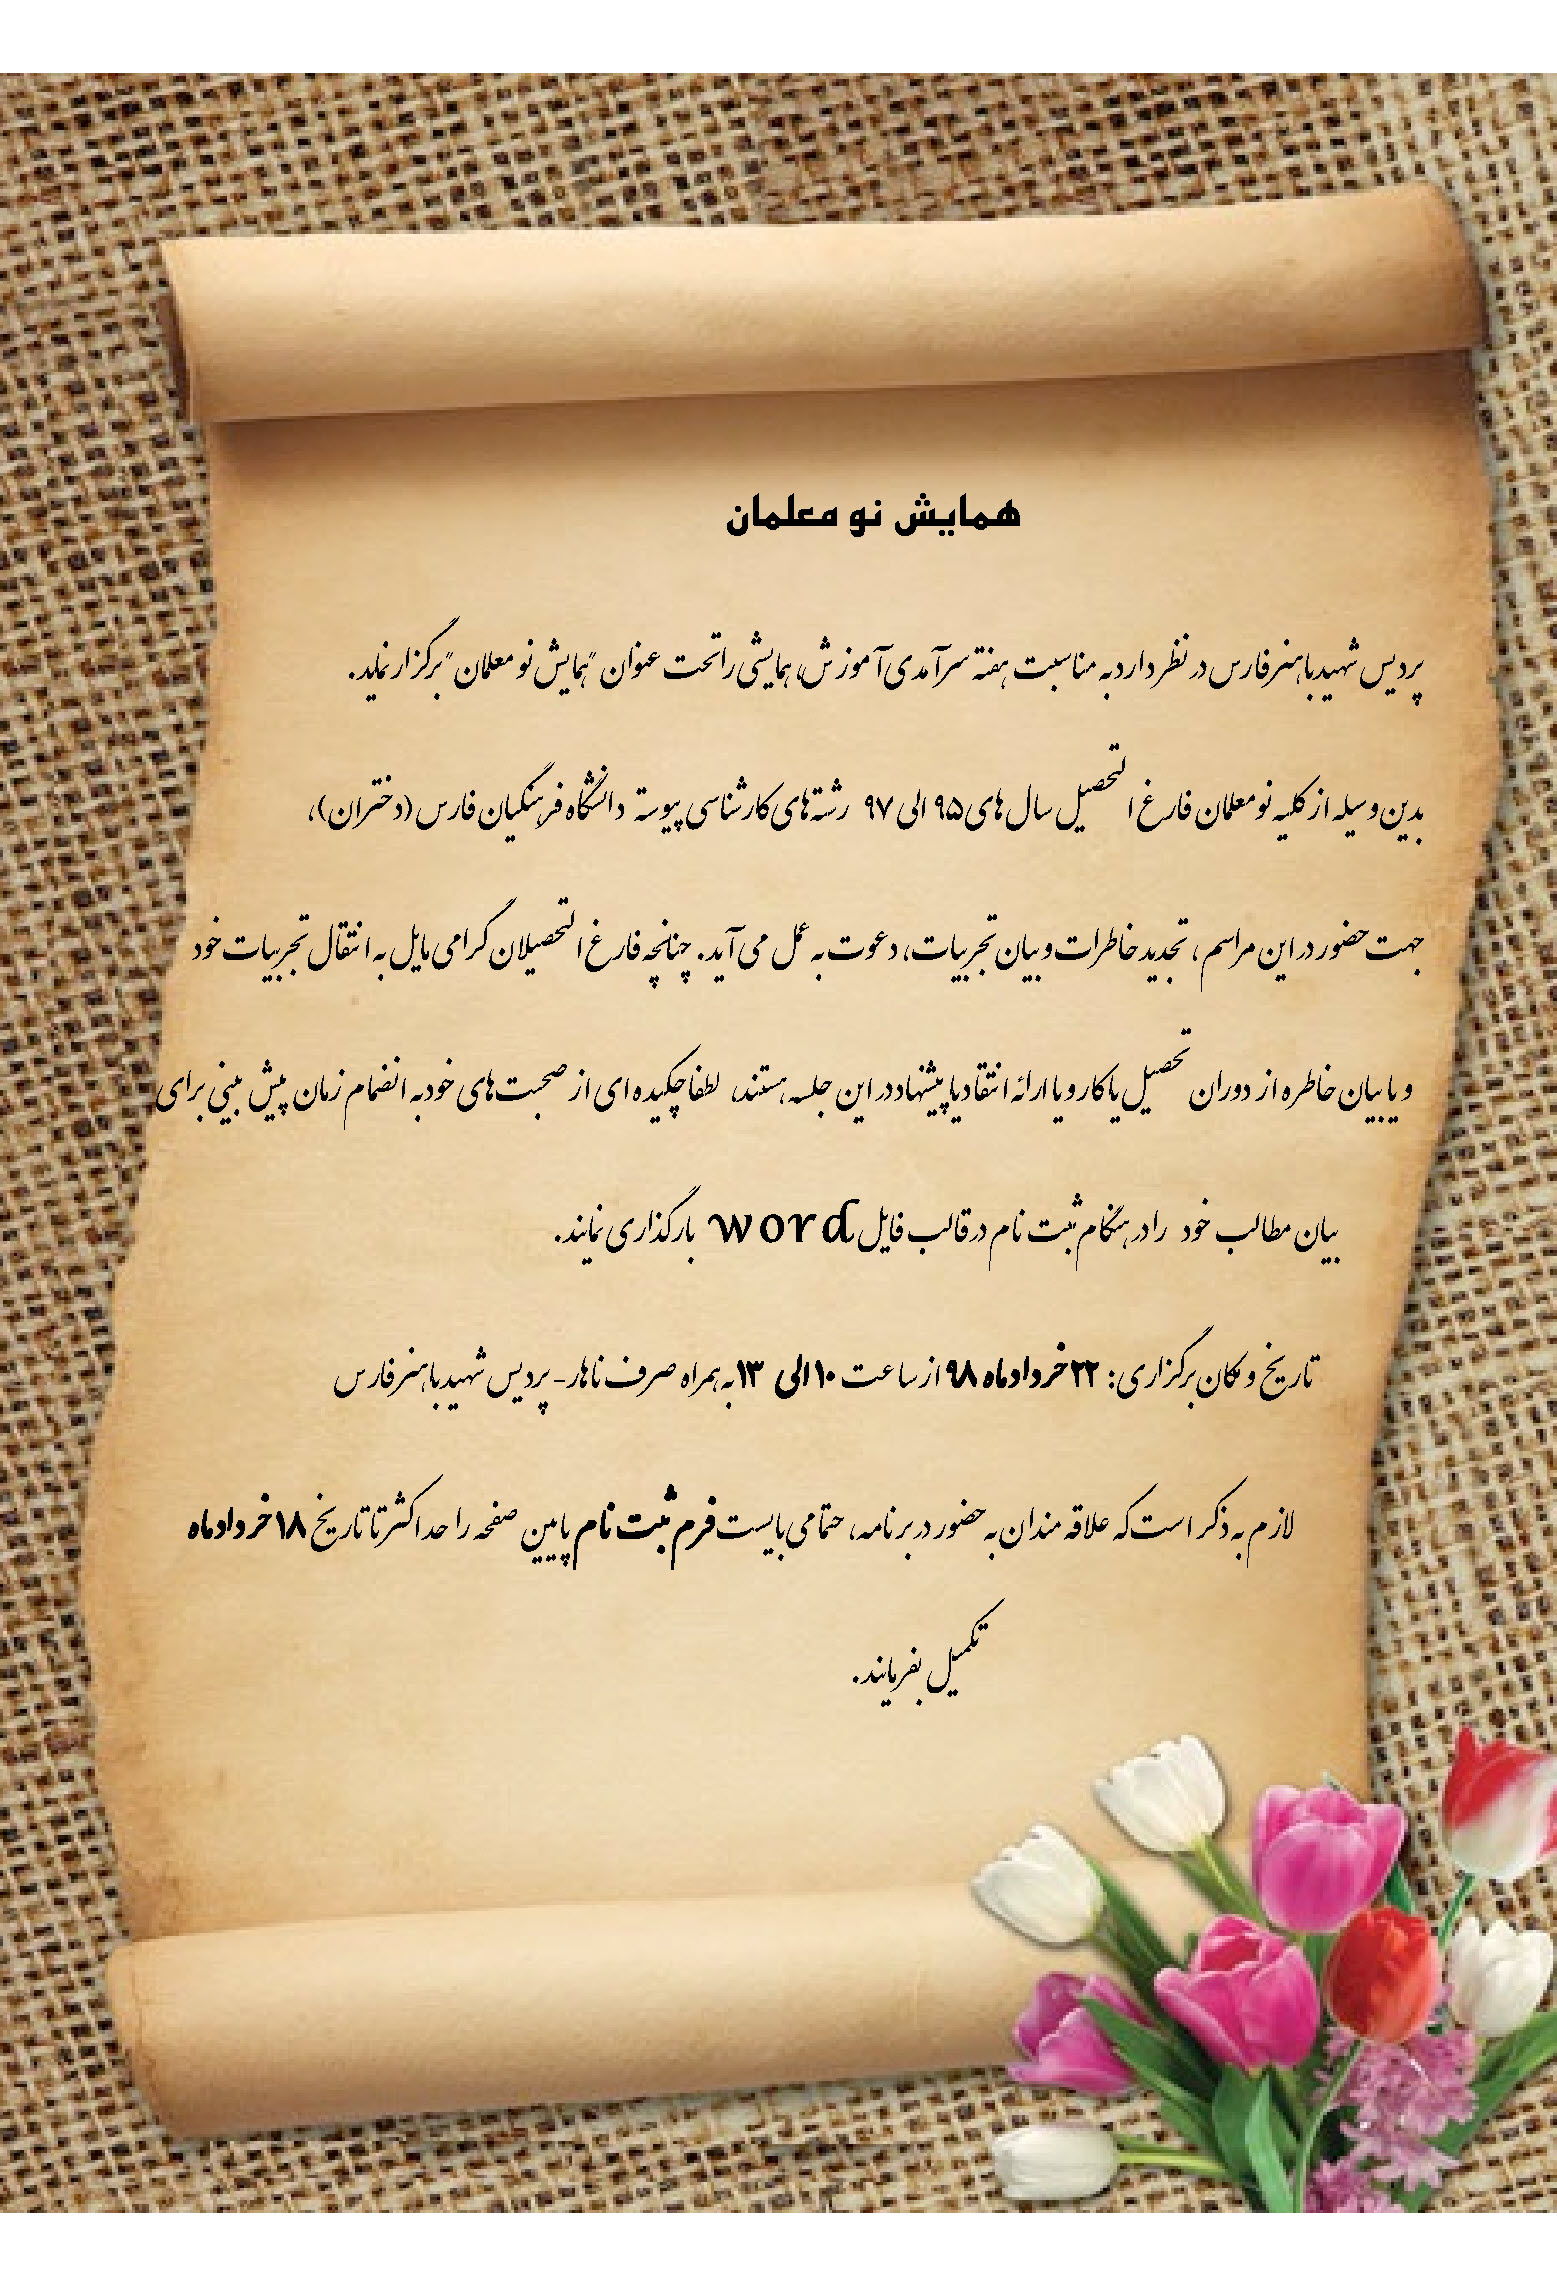 همایش نو معلمان
پردیس شهید باهنر فارس در نظر دارد به مناسبت هفته سرآمدی آموزش، همایشی را تحت عنوان "همایش نو معلمان" برگزار نماید.
بدین وسیله از کلیه نو معلمان فارغ التحصیل سال های ۹۵ الی ۹۷ رشته های کارشناسی پیوسته دانشگاه فرهنگیان فارس (دختران)،
جهت حضور در این مراسم، تجدید خاطرات و بیان تجربیات، دعوت به عمل می آید. چنانچه فارغ التحصیلان گرامی مایل به انتقال تجربیات خود
و یا بیان خاطره از دوران تحصیل یا کار و یا ارائه انتقاد یا پیشنهاد در این جلسه هستند، لطفا چکیده ای از صحبت های خود به انضمام زمان پیش بینی برای
بیان مطالب خود را در هنگام ثبت نام در قالب فایل word بارگذاری نمایند.
تاریخ و مکان برگزاری: ۲۲ خرداد ماه ۹۸ از ساعت ۱۰ الی ۱۳ به همراه صرف ناهار- پردیس شهید باهنر فارس
لازم به ذکر است که علاقه مندان به حضور در برنامه، حتما می بایست فرم ثبت نام پایین صفحه را حداکثر تا تاریخ ۱۸ خرداد ماه
تکمیل بفرمایند.